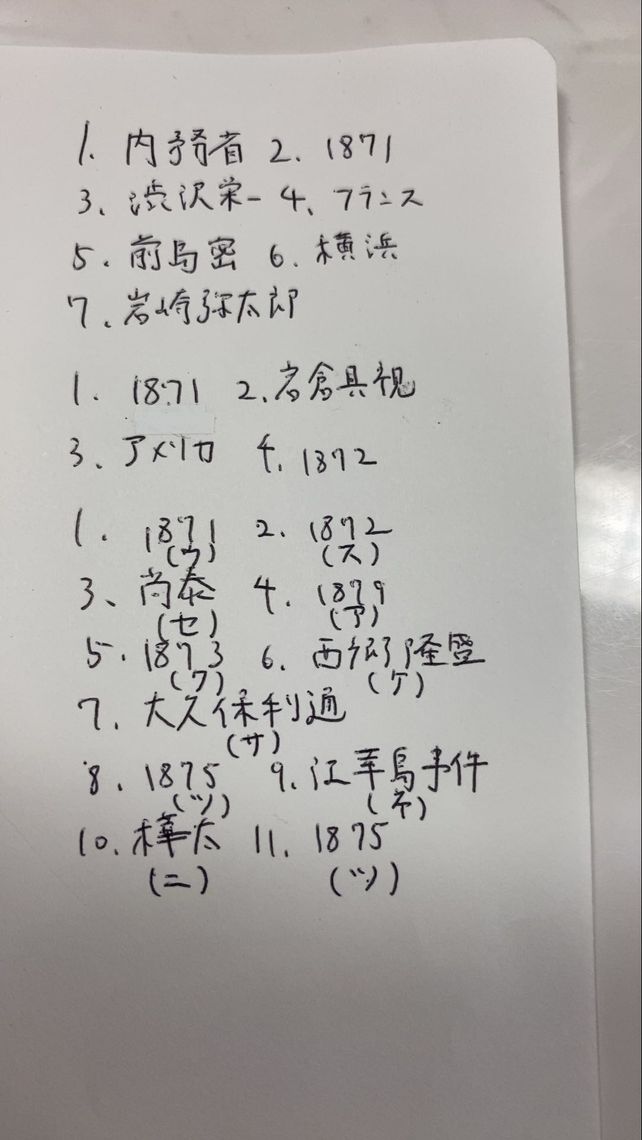 1. 内務省 2. 1871
3. 渋沢栄一 4. フランス
5. 前島密 6. 横浜
7. 岩崎弥太郎
1. 1871 2. 岩倉具視
3. アメリカ 4. 1872
1. 1871 2. 1872
(ウ) (ス)
3. 尚泰 4. 1879
(セ) (ア)
5. 1873 6. 西郷隆盛
(ワ) (ケ)
7. 大久保利通
(サ)
8. 1875 9. 江華島事件
(ツ) (ネ)
10. 樺太 11. 1875
(ニ) (ツ)